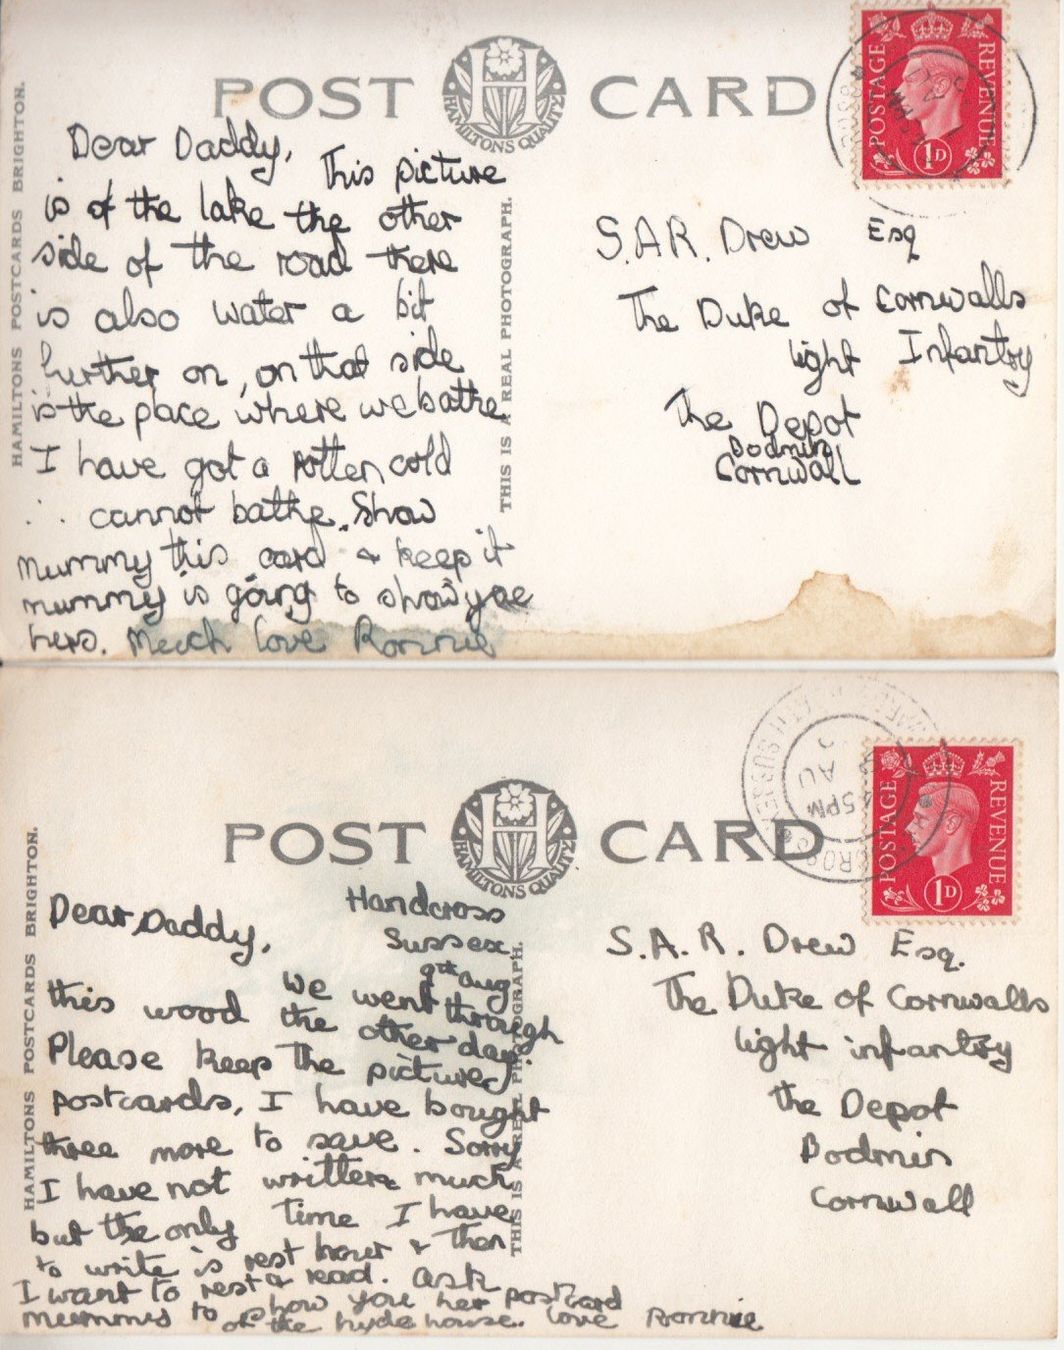 POST CARD
HAMILTONS QUALITY
HAMILTONS POSTCARDS BRIGHTON.
THIS IS A REAL PHOTOGRAPH.
POSTAGE REVENUE
1D
Dear Daddy,
This picture
is of the lake the other
side of the road there
is also water a bit
further on, on that side
is the place where we bathe
I have got a rotten cold
∴ cannot bathe. Show
mummy this card & keep it
mummy is going to show you
hers. Much love Ronnie
S.A.R. Drew Esq
The Duke of Cornwalls
light Infantry
The Depot
Bodmin
Cornwall
POST CARD
HAMILTONS QUALITY
HAMILTONS POSTCARDS BRIGHTON.
THIS IS A REAL PHOTOGRAPH.
POSTAGE REVENUE
1D
45PM
AU
SUSSEX
Handcross
Sussex
9th Aug
Dear Daddy,
We went through
this wood the other day.
Please keep the picture
postcards, I have bought
three more to save. Sorry
I have not written much
but the only time I have
to write is rest hour & then
I want to rest & read. Ask
mummy to show you her postcard
of the hyde house. Love Ronnie
S.A.R. Drew Esq.
The Duke of Cornwalls
light infantry
the Depot
Bodmin
Cornwall